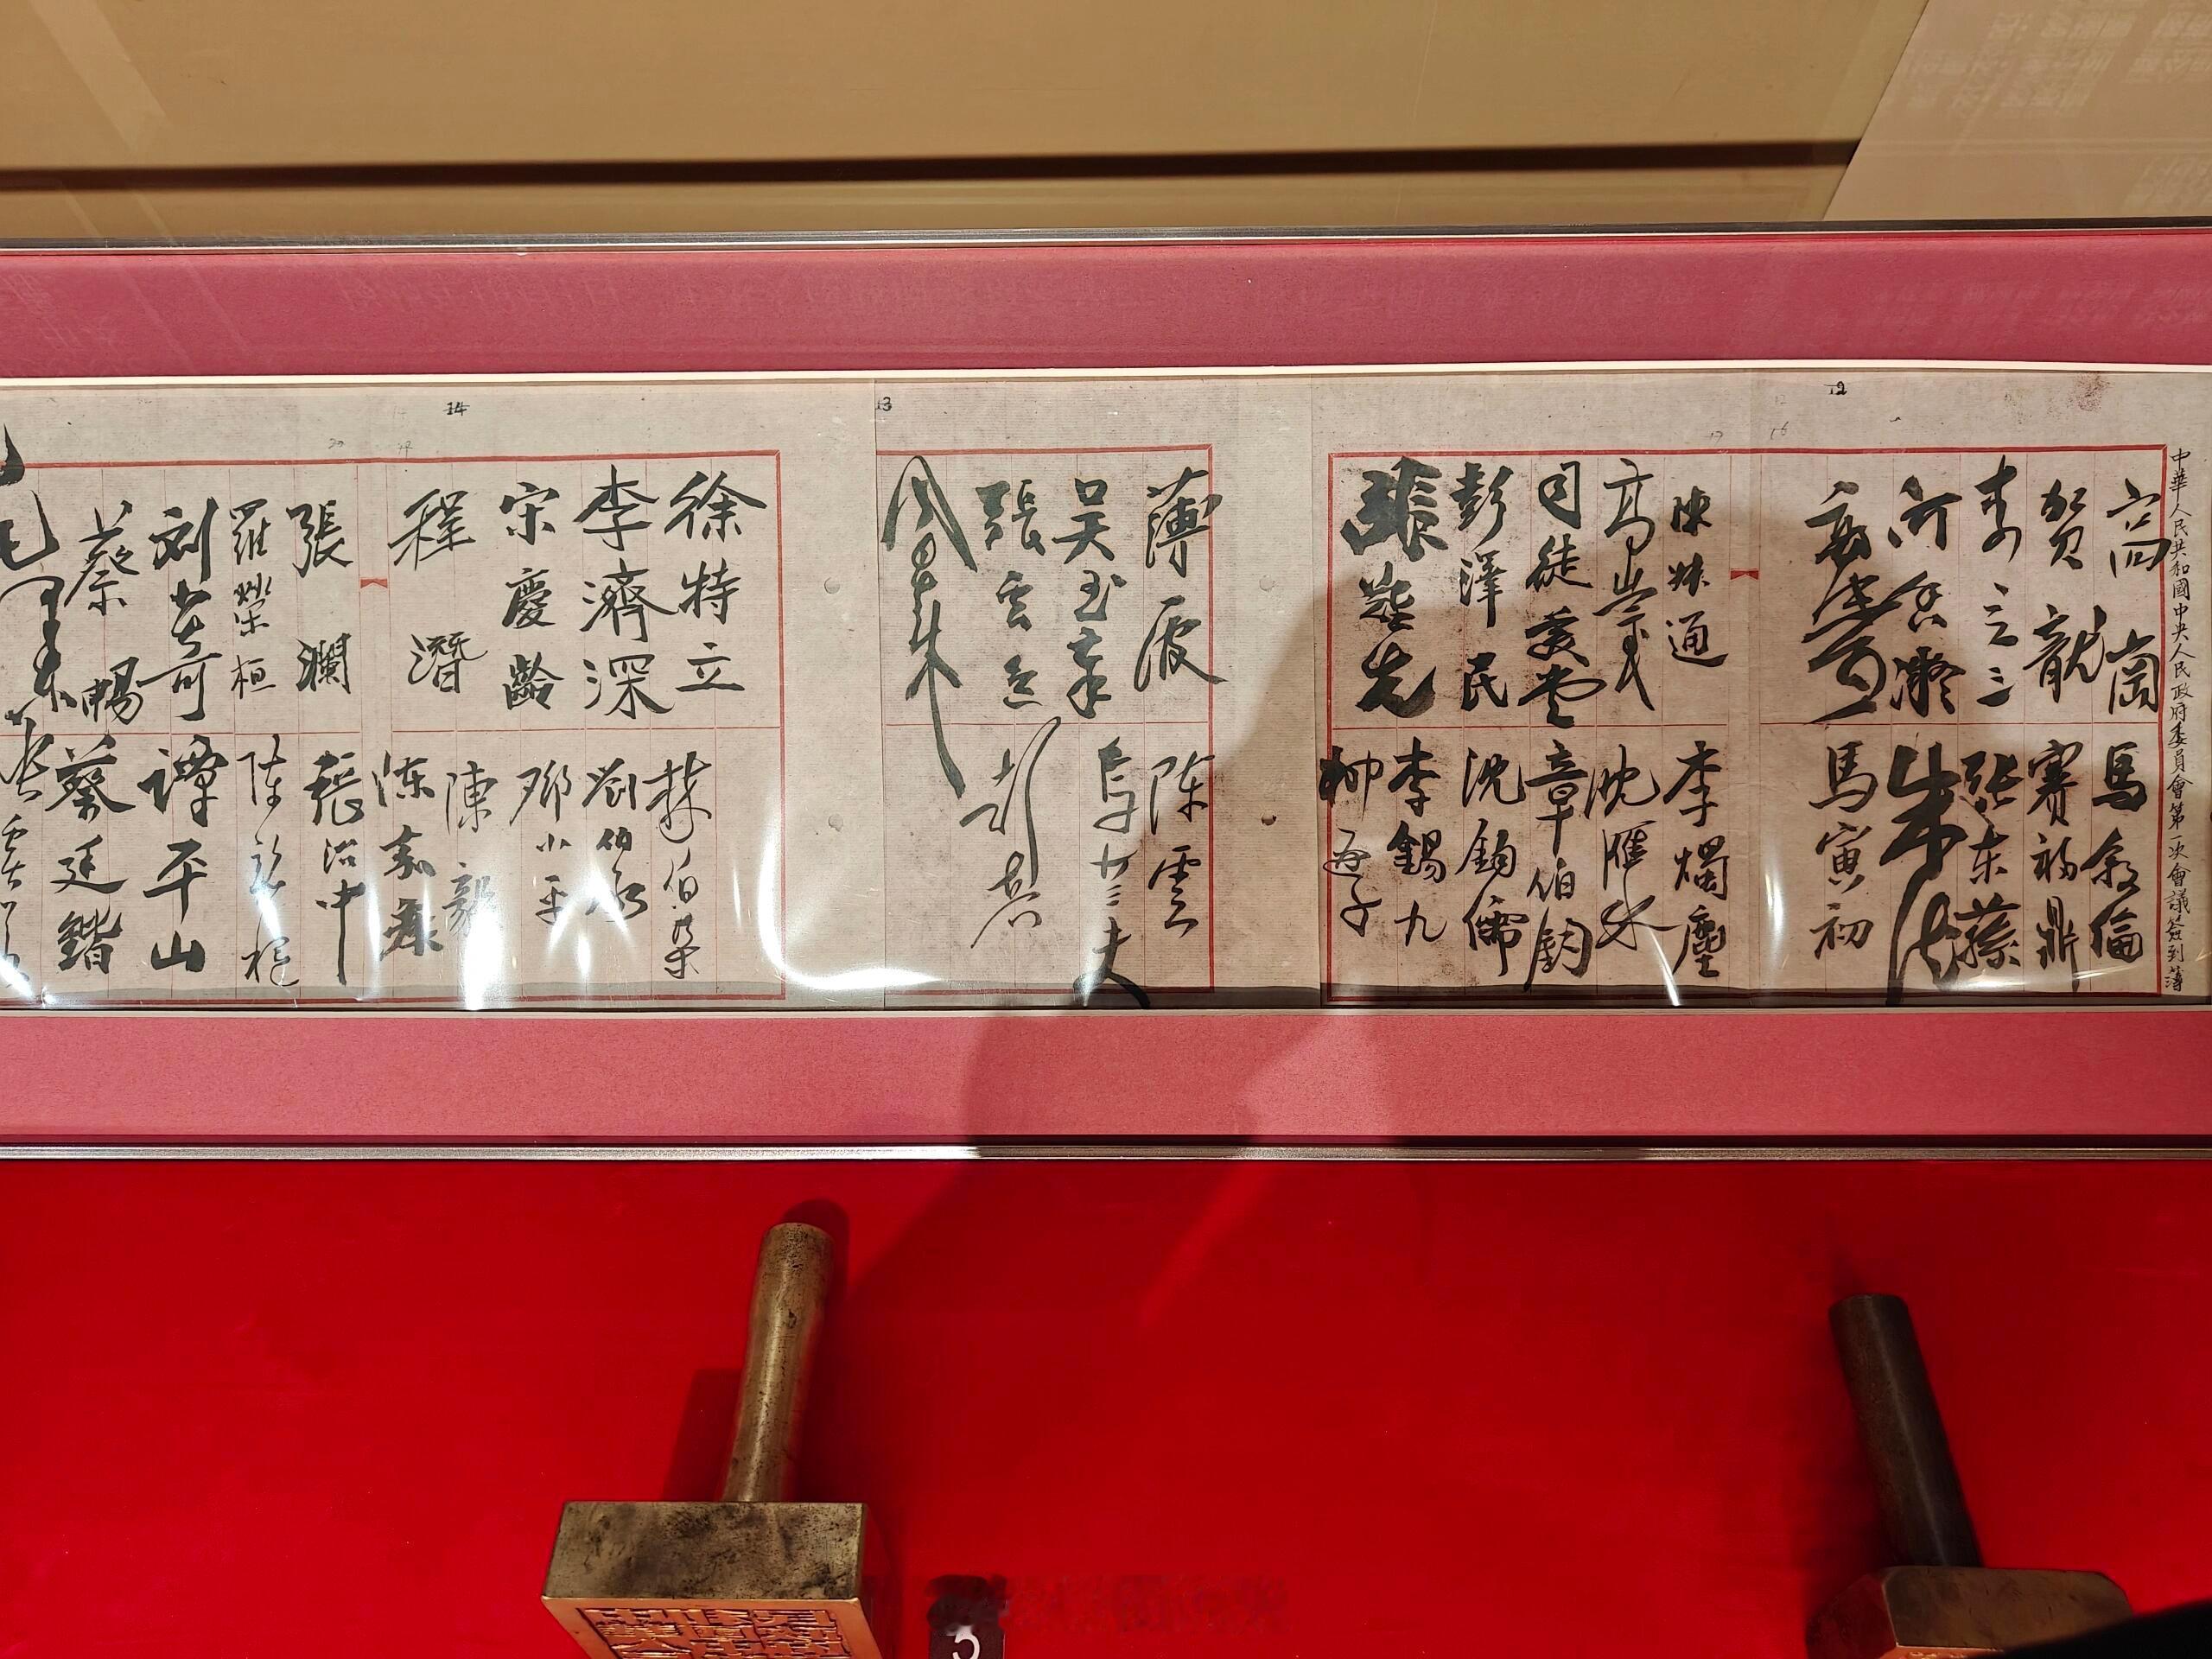 12
中華人民共和國中央人民政府委員會第一次會議簽到簿
高崗
賀龍
李立三
何香凝
馬叙倫
賽福鼎
張东蓀
朱德
馬寅初
陳叔通
高崇民
司徒美堂
彭澤民
張難先
李燭塵
沈雁冰
章伯鈞
沈鈞儒
李錫九
柳亞子
13
薄一波
吴玉章
張雲逸
周恩来
陈雲
烏蘭夫
彭真
14
徐特立
李濟深
宋慶齡
程潛
張瀾
羅榮桓
刘少奇
蔡暢
毛澤東
林伯渠
劉伯承
鄧小平
陳毅
陳嘉庚
張治中
陈銘樞
譚平山
蔡廷鍇
張奚若
3